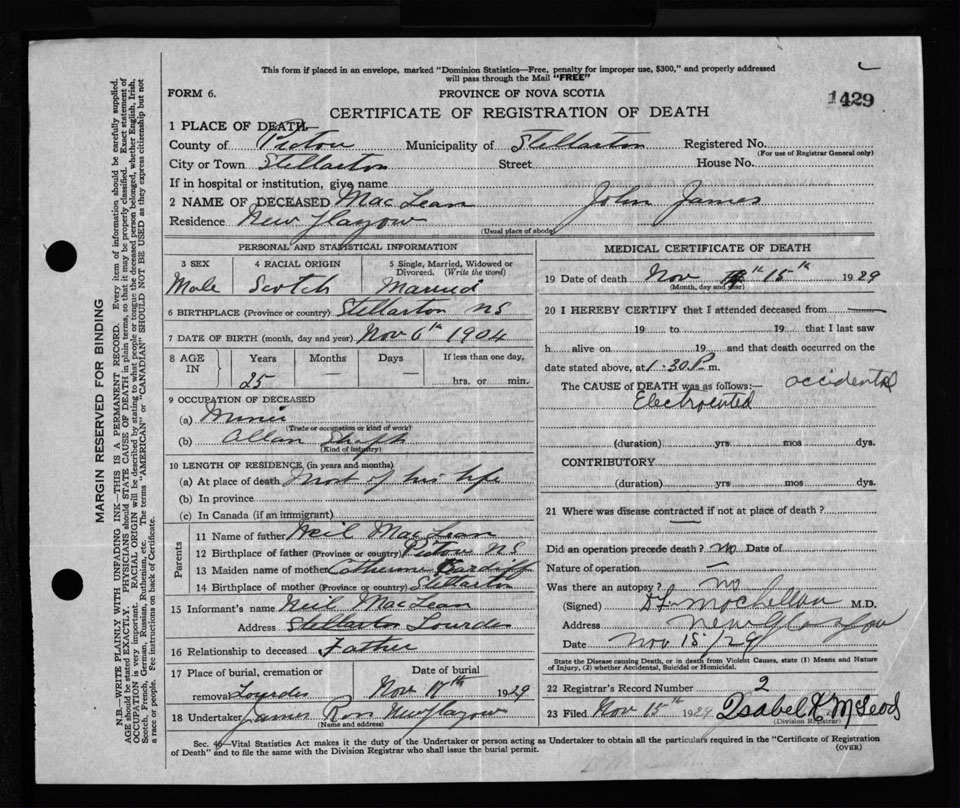 This form if placed in an envelope, marked "Dominion Statistics—Free, penalty for improper use, $300," and properly addressed
will pass through the Mail "FREE"
FORM 6.
PROVINCE OF NOVA SCOTIA
1429
CERTIFICATE OF REGISTRATION OF DEATH
1 PLACE OF DEATH—
County of Pictou Municipality of Stellarton Registered No.
(For use of Registrar General only)
City or Town Stellarton Street House No.
If in hospital or institution, give name
2 NAME OF DECEASED MacLean John James
Residence New Glasgow
(Usual place of abode)
PERSONAL AND STATISTICAL INFORMATION
3 SEX 4 RACIAL ORIGIN 5 Single, Married, Widowed or
Divorced. (Write the word)
Male Scotch Married
6 BIRTHPLACE (Province or country) Stellarton NS
7 DATE OF BIRTH (month, day and year) Nov 6th 1904
8 AGE IN Years Months Days If less than one day,
25 — — hrs. or min.
9 OCCUPATION OF DECEASED
(a) Miner
(Trade or occupation or kind of work)
(b) Allan Shaft
(Kind of industry)
10 LENGTH OF RESIDENCE (in years and months)
(a) At place of death Most of his life
(b) In province
(c) In Canada (if an immigrant)
Parents
11 Name of father Neil MacLean
12 Birthplace of father (Province or country) Pictou N.S
13 Maiden name of mother Catherine Cardiff
14 Birthplace of mother (Province or country) Stellarton
15 Informant's name Neil MacLean
Address Stellarton Lourdes
16 Relationship to deceased Father
17 Place of burial, cremation or Date of burial
removal Lourdes Nov 17th 1929
18 Undertaker James Ross New Glasgow
(Name and address)
MEDICAL CERTIFICATE OF DEATH
19 Date of death Nov 15th 1929
(Month, day and year)
20 I HEREBY CERTIFY that I attended deceased from —
19 to 19 that I last saw
h alive on 19 and that death occurred on the
date stated above, at 1:30 P. m.
The CAUSE of DEATH was as follows:— accidental
Electrocuted
(duration) yrs mos dys.
CONTRIBUTORY
(duration) yrs. mos dys.
21 Where was disease contracted if not at place of death?
—
Did an operation precede death? no Date of
Nature of operation —
Was there an autopsy? no
(Signed) M.D.
Address New Glasgow
Date Nov 15/29
State the Disease causing Death, or in death from Violent Causes, state (1) Means and Nature
of Injury, (2) whether Accidental, Suicidal or Homicidal.
22 Registrar's Record Number 2
23 Filed Nov 15th 1929 Isabel K McLeod
(Division Registrar)
Sec. 46—Vital Statistics Act makes it the duty of the Undertaker or person acting as Undertaker to obtain all the particulars required in the "Certificate of Registration
of Death" and to file the same with the Division Registrar who shall issue the burial permit.
(OVER)
MARGIN RESERVED FOR BINDING
N.B.—WRITE PLAINLY WITH UNFADING INK—THIS IS A PERMANENT RECORD. Every item of information should be carefully supplied.
AGE should be stated EXACTLY. PHYSICIANS should STATE CAUSE OF DEATH in plain terms, so that it may be properly classified. Exact statement of
OCCUPATION is very important. RACIAL ORIGIN will be described by stating to what people or tongue the deceased person belonged, whether English, Irish,
Scotch, French, German, Russian, Ruthenian, etc. The terms "AMERICAN" or "CANADIAN" SHOULD NOT BE USED as they express citizenship but not
a race or people. See instructions on back of Certificate.